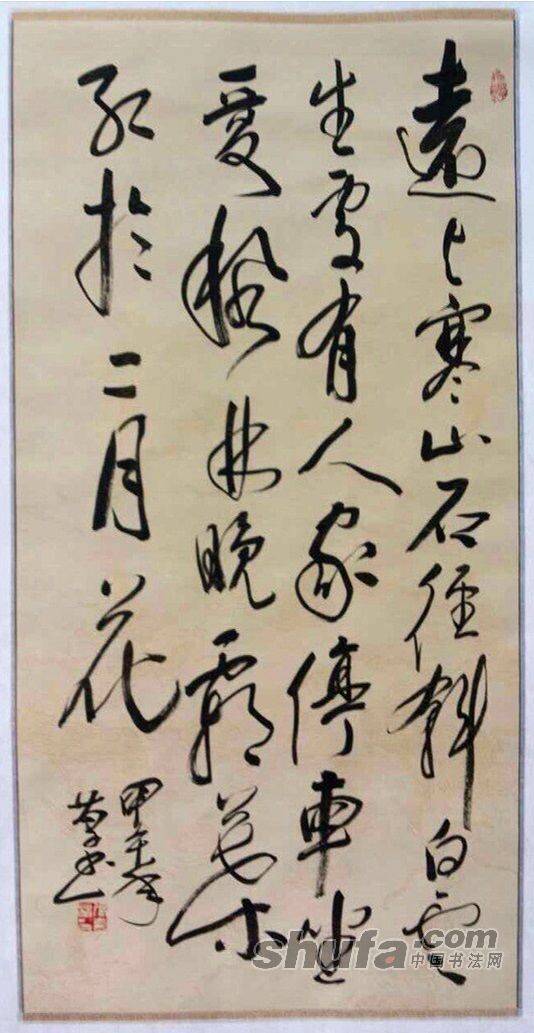 遠上寒山石徑斜白雲
生處有人家停車坐
愛楓林晚霜葉
紅於二月花
甲午年
shufa.com
中国书法网